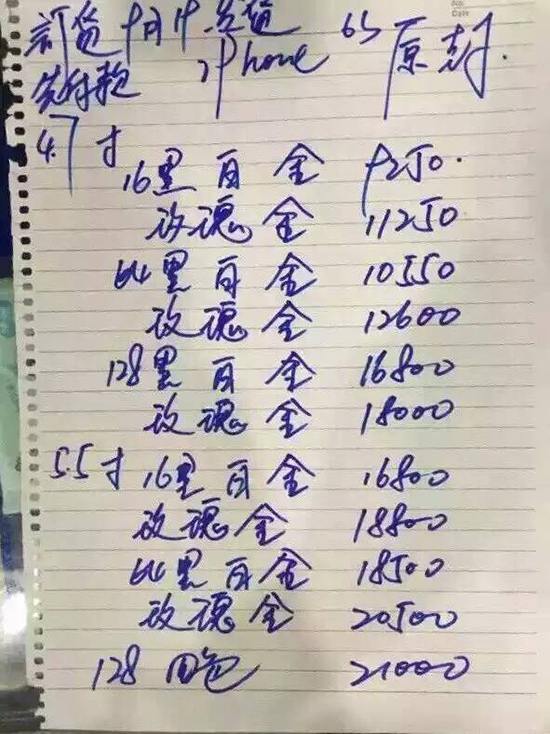 订货 9月19号 送货 iPhone 6S 原封
先付款
4.7寸
16黑白金 9250.
玫瑰金 11250
64黑白金 10550
玫瑰金 12600
128黑白金 16800
玫瑰金 18000
5.5寸 16黑白金 16800
玫瑰金 18800
64黑白金 18500
玫瑰金 20500
128 四色 21000